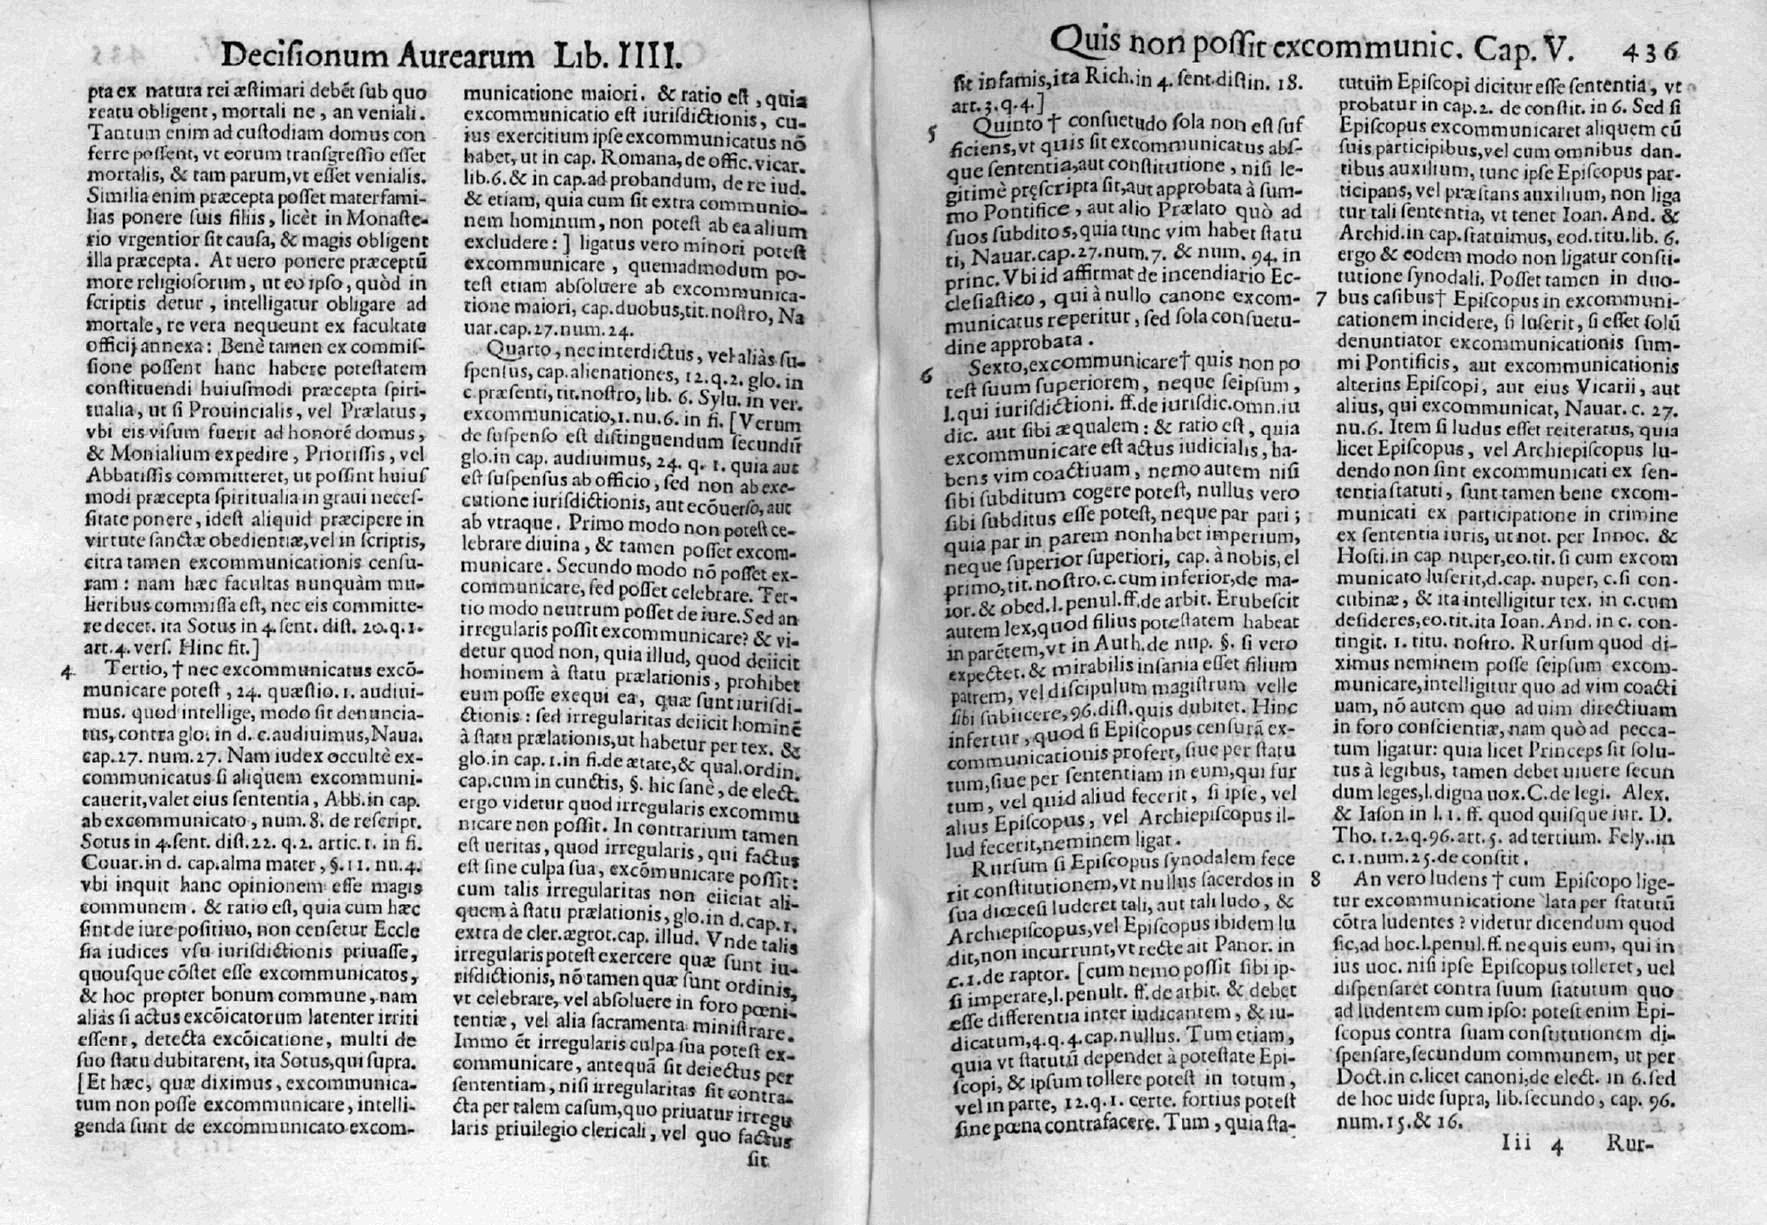 Decisionum Aurearum Lib. IIII.
pta ex natura rei æstimari debēt sub quo
reatu obligent, mortali ne, an veniali.
Tantum enim ad custodiam domus con
ferre possent, vt eorum transgressio esset
mortalis, & tam parum, vt esset venialis.
Similia enim præcepta posset materfami-
lias ponere suis filiis, licèt in Monaste-
rio vrgentior sit causa, & magis obligent
illa præcepta. At uero ponere præceptū
more religiosorum, ut eo ipso, quòd in
scriptis detur, intelligatur obligare ad
mortale, re vera nequeunt ex facultate
officij annexa: Benè tamen ex commis-
sione possent hanc habere potestatem
constituendi huiusmodi præcepta spiri-
tualia, ut si Prouincialis, vel Prælatus,
vbi eis visum fuerit ad honorē domus,
& Monialium expedire, Priorissis, vel
Abbatissis committeret, ut possint huius
modi præcepta spiritualia in graui neces-
sitate ponere, idest aliquid præcipere in
virtute sanctæ obedientiæ, vel in scriptis,
citra tamen excommunicationis censu-
ram: nam hæc facultas nunquàm mu-
lieribus commissa est, nec eis committe-
re decet. ita Sotus in 4. sent. dist. 20. q. 1.
art. 4. vers. Hinc fit.]
4 Tertio, † nec excommunicatus excō-
municare potest, 24. quæstio. 1. audiui-
mus. quod intellige, modo sit denuncia-
tus, contra glo. in d. c. audiuimus, Naua.
cap. 27. num. 27. Nam iudex occultè ex-
communicatus si aliquem excommuni-
cauerit, valet eius sententia, Abb. in cap.
ab excommunicato, num. 8. de rescript.
Sotus in 4. sent. dist. 22. q. 2. artic. 1. in fi.
Couar. in d. cap. alma mater, §. 11. nu. 4.
vbi inquit hanc opinionem esse magis
communem. & ratio est, quia cum hæc
sint de iure positiuo, non censetur Eccle
sia iudices vsu iurisdictionis priuasse,
quousque cōstet esse excommunicatos,
& hoc propter bonum commune, nam
aliàs si actus excōicatorum latenter irriti
essent, detecta excōicatione, multi de
suo statu dubitarent, ita Sotus, qui supra.
[Et hæc, quæ diximus, excommunica-
tum non posse excommunicare, intelli-
genda sunt de excommunicato excom-
municatione maiori. & ratio est, quia
excommunicatio est iurisdictionis, cu-
ius exercitium ipse excommunicatus nō
habet, ut in cap. Romana, de offic. vicar.
lib. 6. & in cap. ad probandum, de re iud.
& etiam, quia cum sit extra communio-
nem hominum, non potest ab ea alium
excludere:] ligatus vero minori potest
excommunicare, quemadmodum po-
test etiam absoluere ab excommunica-
tione maiori, cap. duobus, tit. nostro, Na
uar. cap. 27. num. 24.
Quarto, nec interdictus, vel aliàs su-
spensus, cap. alienationes, 12. q. 2. glo. in
c. præsenti, tit. nostro, lib. 6. Sylu. in ver.
excommunicatio, 1. nu. 6. in fi. [Verum
de suspenso est distinguendum secundū
glo. in cap. audiuimus, 24. q. 1. quia aut
est suspensus ab officio, sed non ab exe-
cutione iurisdictionis, aut ecōuerso, aut
ab vtraque. Primo modo non potest ce-
lebrare diuina, & tamen posset excom-
municare. Secundo modo nō posset ex-
communicare, sed posset celebrare. Ter-
tio modo neutrum posset de iure. Sed an
irregularis possit excommunicare? & vi-
detur quod non, quia illud, quod deiicit
hominem à statu prælationis, prohibet
eum posse exequi ea, quæ sunt iurisdi-
ctionis: sed irregularitas deiicit hominē
à statu prælationis, ut habetur per tex. &
glo. in cap. 1. in fi. de ætate, & qual. ordin.
cap. cum in cunctis, §. hic sanè, de elect.
ergo videtur quod irregularis excommu
nicare non possit. In contrarium tamen
est ueritas, quod irregularis, qui factus
est sine culpa sua, excōmunicare possit:
cum talis irregularitas non eiiciat ali-
quem à statu prælationis, glo. in d. cap. 1.
extra de cler. ægrot. cap. illud. Vnde talis
irregularis potest exercere quæ sunt iu-
risdictionis, nō tamen quæ sunt ordinis,
vt celebrare, vel absoluere in foro pœni-
tentiæ, vel alia sacramenta ministrare.
Immo et irregularis culpa sua potest ex-
communicare, antequā sit deiectus per
sententiam, nisi irregularitas sit contra-
cta per talem casum, quo priuatur irregu
laris priuilegio clericali, vel quo factus
sit
Quis non possit excommunic. Cap. V. 436
sit infamis, ita Rich. in 4. sent. distin. 18.
art. 3. q. 4.]
5 Quinto † consuetudo sola non est suf
ficiens, vt quis sit excommunicatus abs-
que sententia, aut constitutione, nisi le-
gitimè pręscripta sit, aut approbata à sum-
mo Pontifice, aut alio Prælato quò ad
suos subditos, quia tunc vim habet statu
ti, Nauar. cap. 27. num. 7. & num. 94. in
princ. Vbi id affirmat de incendiario Ec-
clesiastico, qui à nullo canone excom-
municatus reperitur, sed sola consuetu-
dine approbata.
6 Sexto, excommunicare † quis non po
test suum superiorem, neque seipsum,
l. qui iurisdictioni. ff. de iurisdic. omn. iu
dic. aut sibi æqualem: & ratio est, quia
excommunicare est actus iudicialis, ha-
bens vim coactiuam, nemo autem nisi
sibi subditum cogere potest, nullus vero
sibi subditus esse potest, neque par pari;
quia par in parem non habet imperium,
neque superior superiori, cap. à nobis, el
primo, tit. nostro. c. cum inferior, de ma-
ior. & obed. l. penul. ff. de arbit. Erubescit
autem lex, quod filius potestatem habeat
in parētem, vt in Auth. de nup. §. si vero
expectet. & mirabilis insania esset filium
patrem, vel discipulum magistrum velle
sibi subiicere, 96. dist. quis dubitet. Hinc
infertur, quod si Episcopus censurā ex-
communicationis profert, siue per statu
tum, siue per sententiam in eum, qui fur
tum, vel quid aliud fecerit, si ipse, vel
alius Episcopus, vel Archiepiscopus il-
lud fecerit, neminem ligat.
Rursum si Episcopus synodalem fece
rit constitutionem, vt nullus sacerdos in
sua diœcesi luderet tali, aut tali ludo, &
Archiepiscopus, vel Episcopus ibidem lu
dit, non incurrunt, vt recte ait Panor. in
c. 1. de raptor. [cum nemo possit sibi ip-
si imperare, l. penult. ff. de arbit. & debet
esse differentia inter iudicantem, & iu-
dicatum, 4. q. 4. cap. nullus. Tum etiam,
quia vt statutū dependet à potestate Epi-
scopi, & ipsum tollere potest in totum,
vel in parte, 12. q. 1. certe. fortius potest
sine pœna contrafacere. Tum, quia sta-
tutum Episcopi dicitur esse sententia, vt
probatur in cap. 2. de constit. in 6. Sed si
Episcopus excommunicaret aliquem cū
suis participibus, vel cum omnibus dan-
tibus auxilium, tunc ipse Episcopus par-
ticipans, vel præstans auxilium, non liga
tur tali sententia, vt tenet Ioan. And. &
Archid. in cap. statuimus, eod. titu. lib. 6.
ergo & eodem modo non ligatur consti-
tutione synodali. Posset tamen in duo-
7 bus casibus † Episcopus in excommuni-
cationem incidere, si luserit, si esset solū
denuntiator excommunicationis sum-
mi Pontificis, aut excommunicationis
alterius Episcopi, aut eius Vicarii, aut
alius, qui excommunicat, Nauar. c. 27.
nu. 6. Item si ludus esset reiteratus, quia
licet Episcopus, vel Archiepiscopus lu-
dendo non sint excommunicati ex sen-
tentia statuti, sunt tamen bene excom-
municati ex participatione in crimine
ex sententia iuris, ut not. per Innoc. &
Hosti. in cap nuper, eo. tit. si cum excom
municato luserit, d. cap. nuper, c. si con-
cubinæ, & ita intelligitur tex. in c. cum
desideres, eo. tit. ita Ioan. And. in c. con-
tingit. 1. titu. nostro. Rursum quod di-
ximus neminem posse seipsum excom-
municare, intelligitur quo ad vim coacti
uam, nō autem quo ad uim directiuam
in foro conscientiæ, nam quò ad pecca-
tum ligatur: quia licet Princeps sit solu-
tus à legibus, tamen debet uiuere secun
dum leges, l. digna uox. C. de legi. Alex.
& Iason in l. 1. ff. quod quisque iur. D.
Tho. 1. 2. q. 96. art. 5. ad tertium. Fely. in
c. 1. num. 25. de constit.
8 An vero ludens † cum Episcopo lige-
tur excommunicatione lata per statutū
cōtra ludentes? videtur dicendum quod
sic, ad hoc. l. penul. ff. ne quis eum, qui in
ius uoc. nisi ipse Episcopus tolleret, uel
dispensaret contra suum statutum quo
ad ludentem cum ipso: potest enim Epi-
scopus contra suam constitutionem di-
spensare, secundum communem, ut per
Doct. in c. licet canoni, de elect. in 6. sed
de hoc uide supra, lib. secundo, cap. 96.
num. 15. & 16.
Iii 4 Rur-